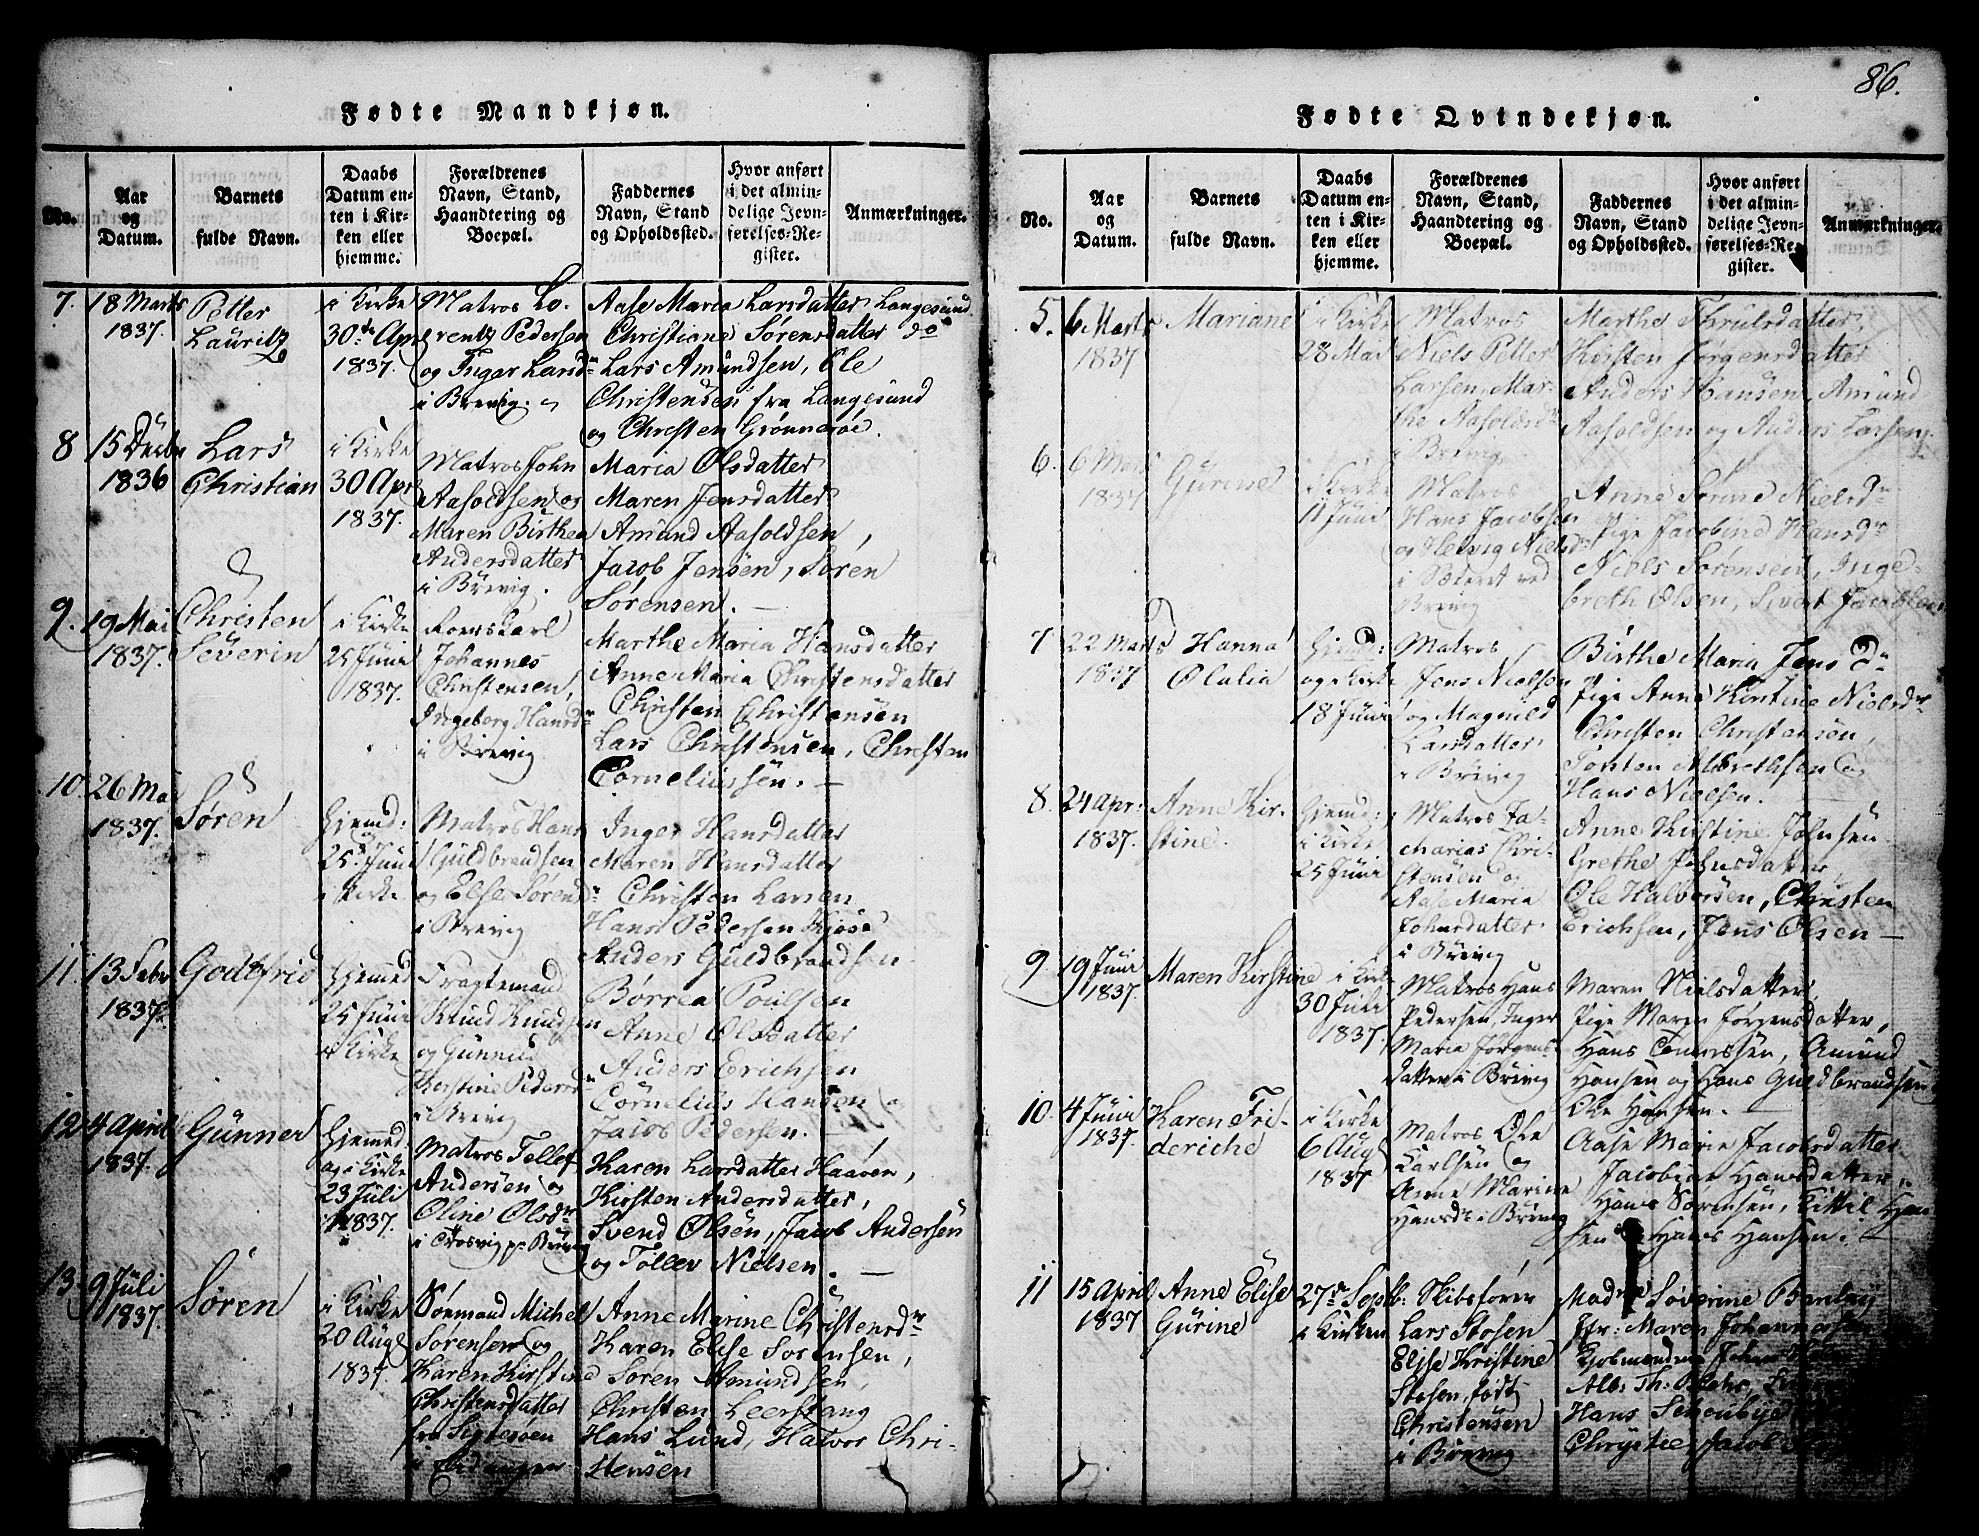 86.
Fødte Mandkjøn.
No.
Aar
og
Datum.
Barnets
fulde Navn.
Daabs
Datum en-
ten i Kir-
ken eller
hjemme.
Forældrenes
Navn, Stand,
Haandtering og
Boepæl.
Faddernes
Navn, Stand
og Opholdssted.
Hvor anført
i det almin-
delige Jevn-
førelses-Re-
gister.
Anmærkninger.
7. 18 Marts
1837.
Petter
Lauritz
i Kirke
30te Apr
1837.
Matros Lo-
rentz Pedersen
og Inger Larsdr
i Brevig.
Aase Maria Larsdatter Langesund
Christiane Sørensdatter do
Lars Amundsen, Ole
Christensen fra Langesund
og Christen Grönnerøe.
8 15 Decbr
1836
Lars
Christian
i Kirke
30 Apr
1837.
Matros John
Aasoldsen og
Maren Birthea
Andersdatter
i Brevig.
Maria Olsdatter
Maren Jensdatter
Amund Aasoldsen,
Jacob Jensen, Søren
Sørensen. —
9. 19 Mai
1837.
Christen
Severin
i Kirke
25 Juni
1837.
Roerskarl
Johannes
Christensen,
Ingeborg Hansdr
i Brevig
Marthe Maria Hansdatter
Anne Maria Christensdatter
Christen Christensen
Lars Christensen, Christen
Corneliussen. —
10. 26 Mai
1837.
Søren
Hjemd:
25 Juni
i Kirke
Matros Hans
Guldbrandsen
og Else Sørensdr
i Brevig
Inger Hansdatter
Maren Hansdatter
Christen Larsen
Hans Pedersen Kjøse
Anders Guldbrandsen
11. 13 Febr
1837.
Godtfrid
Hjemed
25 Juni
i Kirke
Fragtemand
Knud Knudsen
og Gunnild
Kirstine Pedersdr
i Brevig
Børrea Poulsen
Anne Olsdatter
Anders Erichsen
Cornelius Hansen og
Jacob Pedersen. —
12 4 April
1837.
Günner
Hjemed
og i Kirke
23 Juli
1837.
Matros Tellef
Andersen og
Oline Olsdr
i Trosvig pr Brevig
Karen Larsdatter Haaven,
Kirsten Andersdatter,
Svend Olsen, Jacob Andersen
og Töller Nielsen. —
13. 9 Juli
1837.
Søren
i Kirke
20 Aug
1837.
Sømand Michel
Sörensen og
Karen Kirstine
Christensdatter
i Eidanger
Anne Marine Christensdr
Karen Elise Sørensen,
Søren Amundsen,
Christen Leerstang
Hans Lund, Halvor Chri-
stensen
Fødte Qvindekjøn.
No.
Aar
og
Datum.
Barnets
fulde Navn.
Daabs
Datum en-
ten i Kir-
ken eller
hjemme.
Forældrenes
Navn, Stand,
Haandtering og
Boepæl.
Faddernes
Navn, Stand
og Opholdssted.
Hvor anført
i det almin-
delige Jevn-
førelses-Re-
gister.
Anmærkninger.
5. 6 Marts
1837
Mariane
i Kirke
28 Mai
Matros
Niels Petter
Larsen, Mar-
the Aasoldsdr
i Brevig
Marthe Thrulsdatter,
Kirsten Jørgensdatter
Anders Hansen, Amund
Aasoldsen og Anders Larsen.
6. 6 Marts
1837
Gurine
i Kirke
11 Juni
Matros
Hans Jacobsen
og Helvig Nielsdr
ved
Brevig
Anne Sørine Nielsdr
Pige Jacobine Hansdr
Niels Sørensen, Inge-
breth Olsen, Sivert Jacobsen
7 22 Marts
1837
Hanna
Olalia
Hjemd:
og i Kirke
18 Juni
Matros
Jens Nielsen
og Magnild
Larsdatter
i Brevig
Birthe Maria Jens Dr
Pige Anne Kirstine Nielsdr
Christen Christensen,
Tønton Albrethsen og
Hans Nielsen.
8. 24 Apr:
1837.
Anne Kir-
stine.
Hjemd:
i Kirke
25 Juni
Matros Za-
charias Chri-
stensen og
Aase Maria
Johnsdatter
i Brevig
Anne Kirstine Johnsen
Grethe Johnsdatter,
Ole Halvorsen, Christen
Erichsen, Jens Olsen —
9. 19 Juni
1837.
Maren Kirstine
i Kirk
30 Juli
1837.
Matros Hans
Pedersen, Inger
Maria Jørgens-
datter i Brevig
Maren Nielsdatter,
Pige Maren Jørgensdatter,
Hans Tomassen, Amund
Hansen og Hans Guldbrandsen
Ole Hansen. —
10. 4 Juni
1837.
Karen Fri-
deriche
i Kirke
6 Aug
1837
Matros Ole
Carlsen og
Anne Marine
Hansdr i Brevig
Aase Marie Jacobsdatter
Jacobine Hansdatter,
Hans Sørensen, Kittil Han-
sen og Hans Hansen.
11 15 April
1837
Anne Elise
Gurine
27de Septb:
i Kirken
Skibsfører
Lars Stosen
Elise Kristine
Stosen, født
Christensen
i Brevig
Madme Søverine
Jfr: Maren Johannesen
Kjøbmændene
Alb: Th:
Hans
Chrystie, Jacob